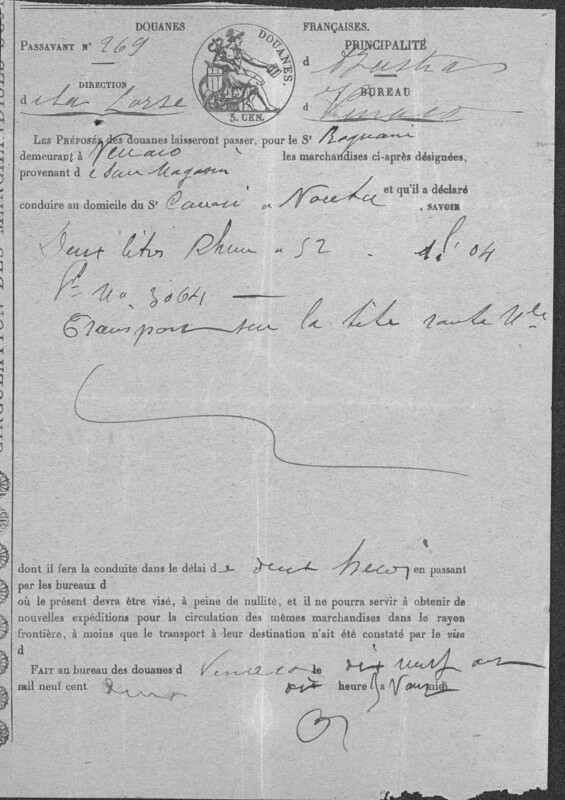 DOUANES FRANÇAISES.
PASSAVANT N° 269
DOUANES.
5. CEN.
PRINCIPALITÉ
d Bastia
DIRECTION
de la Corse
BUREAU
d Venaco
LES PRÉPOSÉS des douanes laisseront passer, pour le Sr
demeurant à Venaco les marchandises ci-après désignées,
provenant de son Magasin
et qu'il a déclaré
conduire au domicile du Sr à SAVOIR
Deux litres Rhum à 52 - 1l 04
No 3064 —
Transport sur la tête route Nle
dont il fera la conduite dans le délai de deux heures en passant
par les bureaux d
où le présent devra être visé, à peine de nullité, et il ne pourra servir à obtenir de
nouvelles expéditions pour la circulation des mêmes marchandises dans le rayon
frontière, à moins que le transport à leur destination n'ait été constaté par le visa
d
FAIT au bureau des douanes d Venaco le dix neuf
mil neuf cent dix heure midi